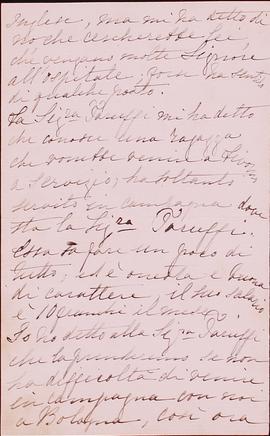 Inglese, ma mi ha detto di
no che cercherebbe lei,
che vengano molte Signore
all'ospitale, se ha sentito
di qualche posto.
La Sigra Taruffi mi ha detto
che conosce una ragazza
che vorrebbe venire a
a servizio; ha soltanto
servito in campagna dove
sta la Sigra Taruffi.
Essa sa fare un poco di
tutto; ed è onesta e buona
di carattere, il suo salario
è 10 franchi il mese.
Io ho detto alla Sigra Taruffi
che la prenderemo se non
ha difficoltà di venire
in campagna con noi
a Bologna, così ora